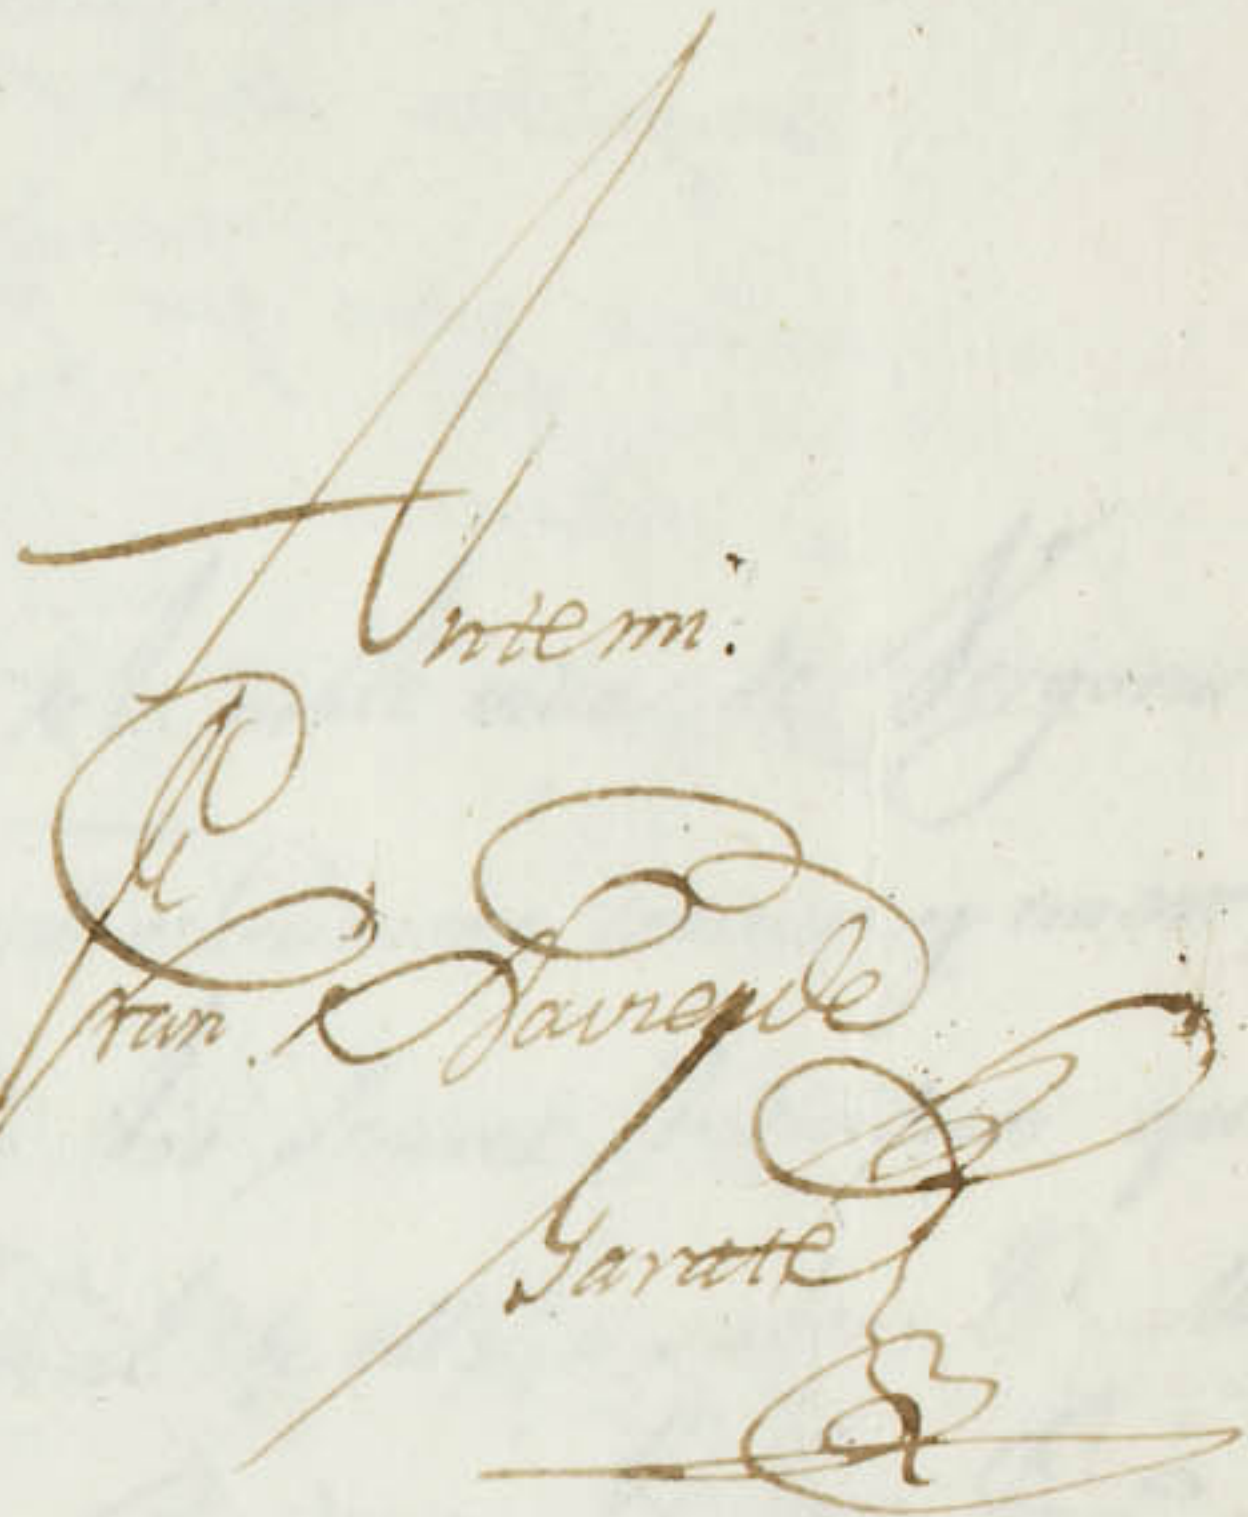 Antemi:
Fran. Xavier de
Garate